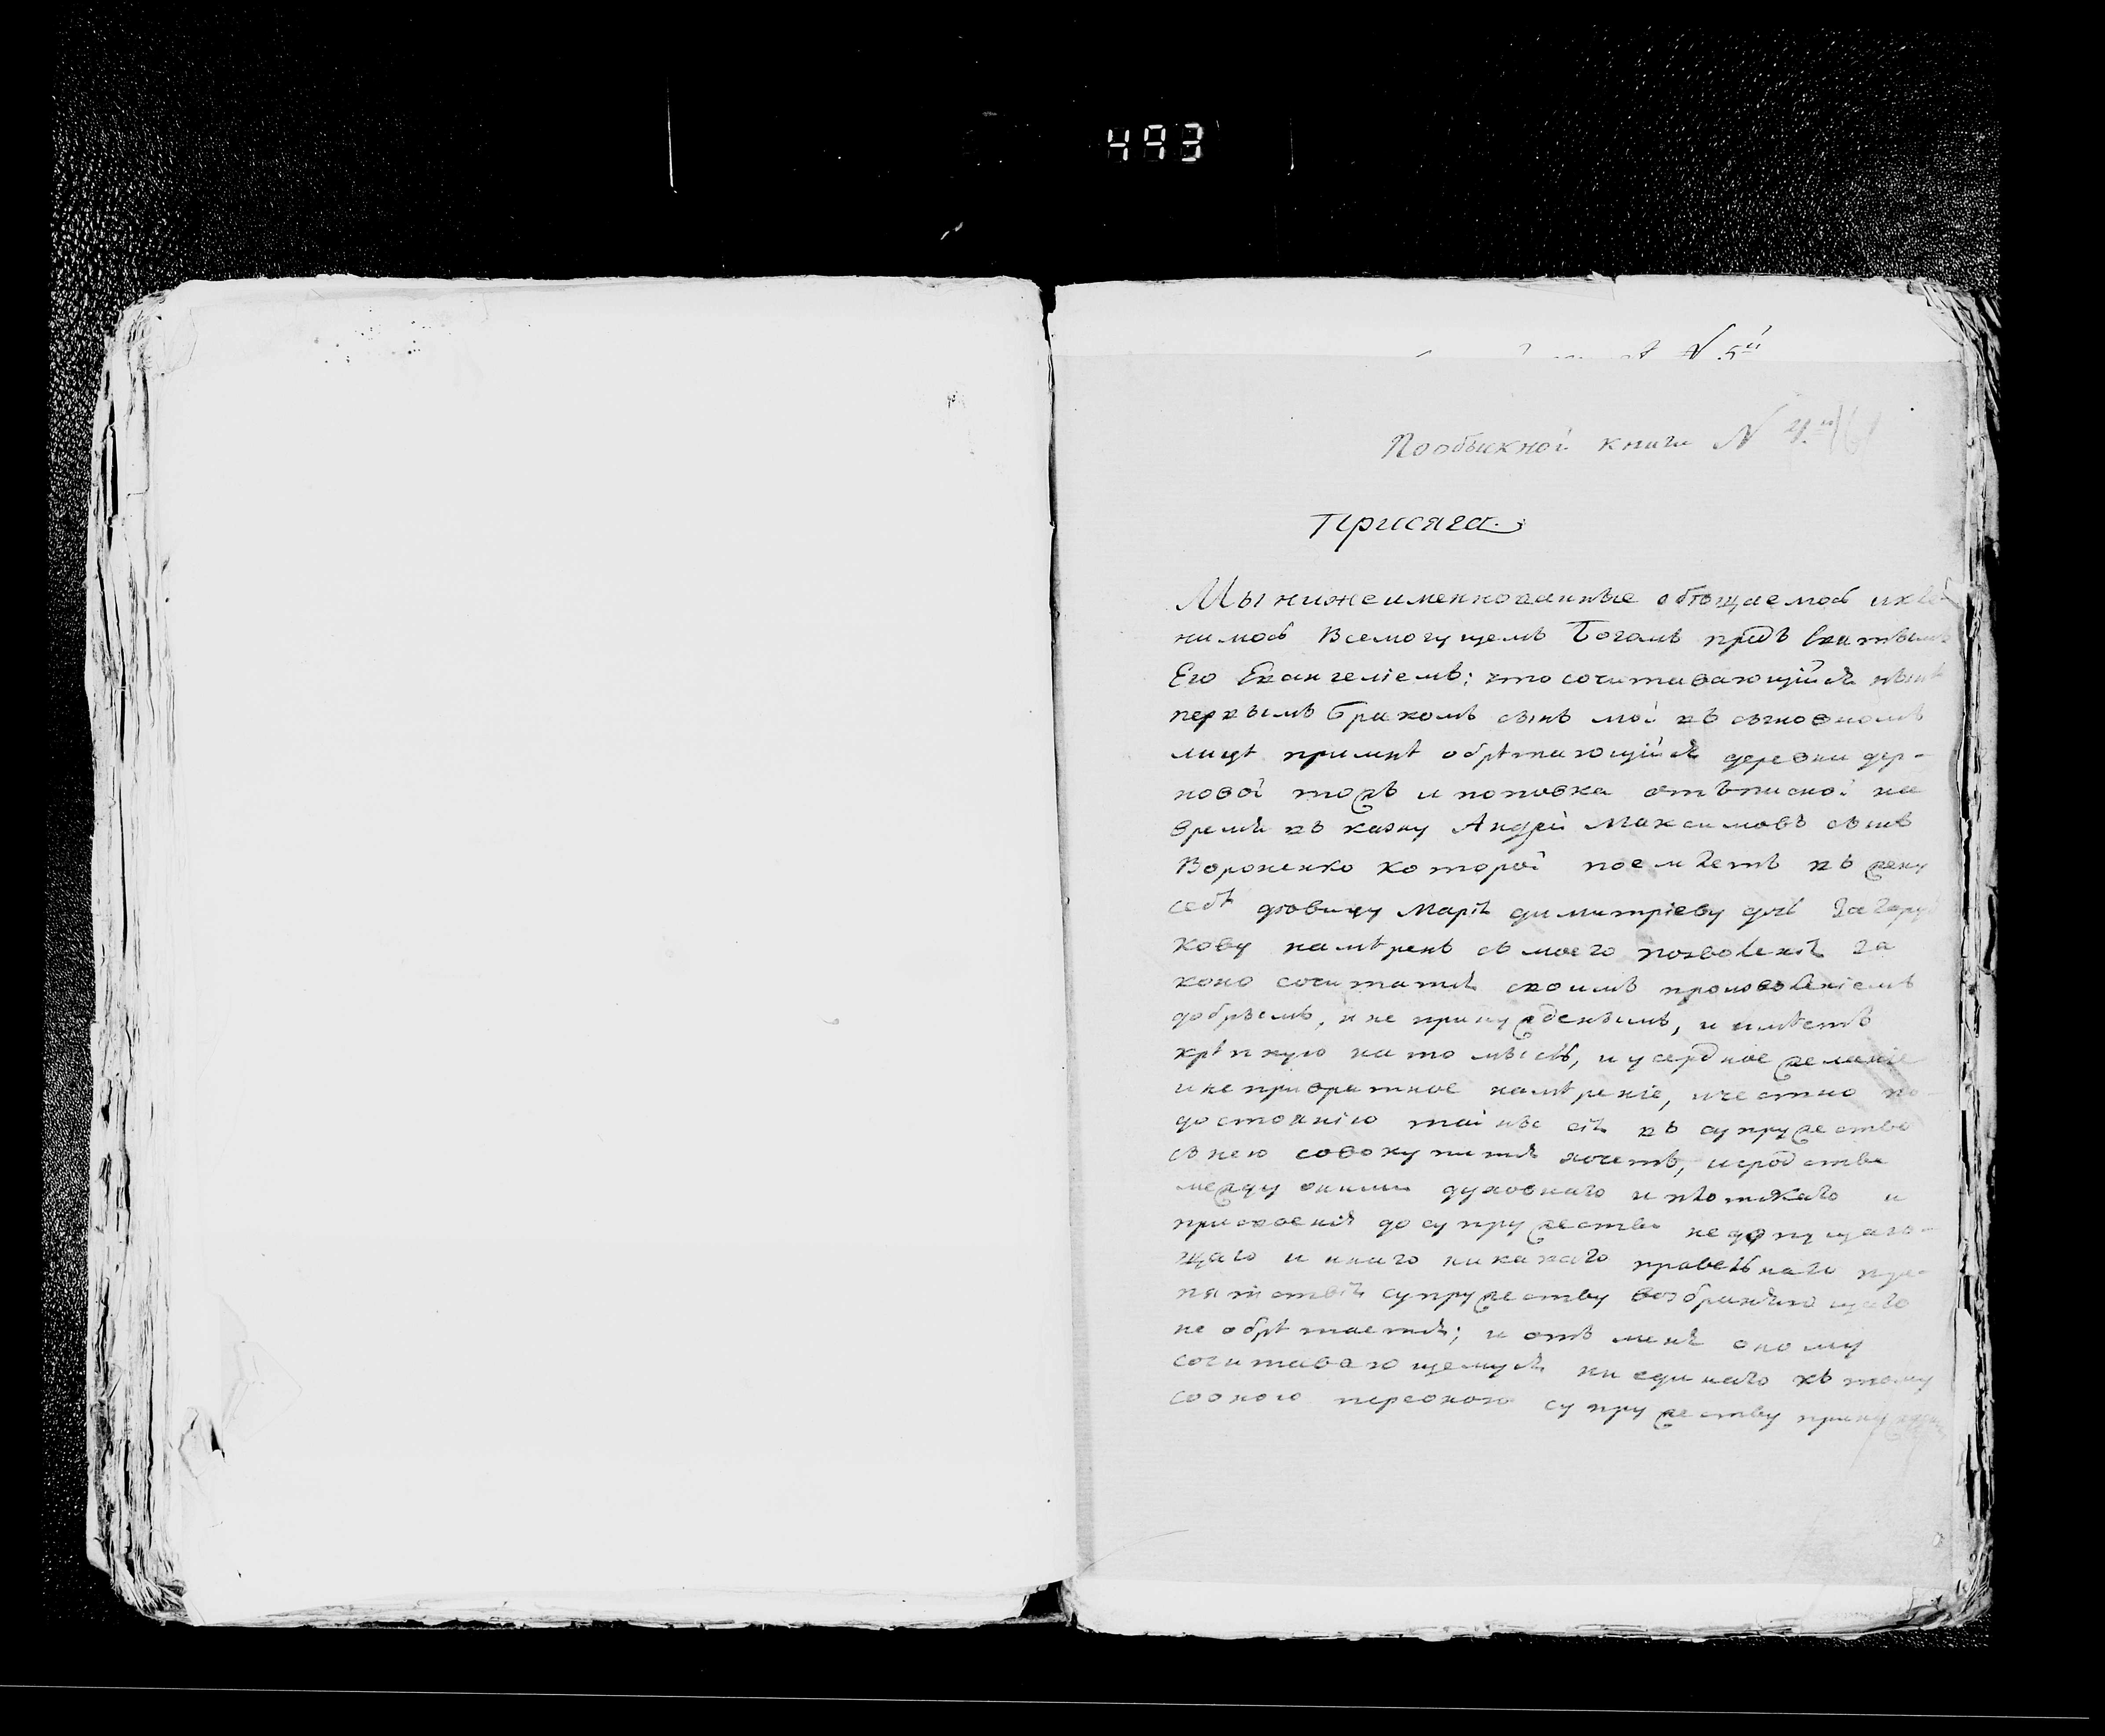 493
N 5й
Пообыкной книги N 4й
Присяга
Мы нижеименнованные обѣщаемся и кля
нимся Всемогущемъ Богомъ предъ святымъ
Его Евангеліемъ; что сочитавающійся нынѣ
первымъ бракомъ сынъ мой въ сыновномъ
лицѣ примнѣ обрѣтающійся деревни дер-
новой тожъ и поповка отъписной на
время въ казну Андрей Максимовъ сынъ
Вороненко которой поемлетъ въ жену
себѣ дювицу Марію димитріеву дочь
кову намѣренъ съ моего позволенія за
коно сочитатися своимъ произволеніемъ
добрымъ, и не принужденнымъ, и имѣетъ
крѣпкую на то мысль, и усердное желаніе
и не привратное намѣреніе, и честно по
достоянію тайны сія въ супружество
съ нею совокупится хочетъ, и сродства
между оними духовнаго и плотскаго и
присвоенія до супружества недопущаю-
щаго и инаго никакаго правелнаго пре-
пятствія супружеству возбраняющаго
не обрѣтается; и отъ мене оному
сочитавающемуся ни единаго къ тому
сооною персоною супружеству принужден